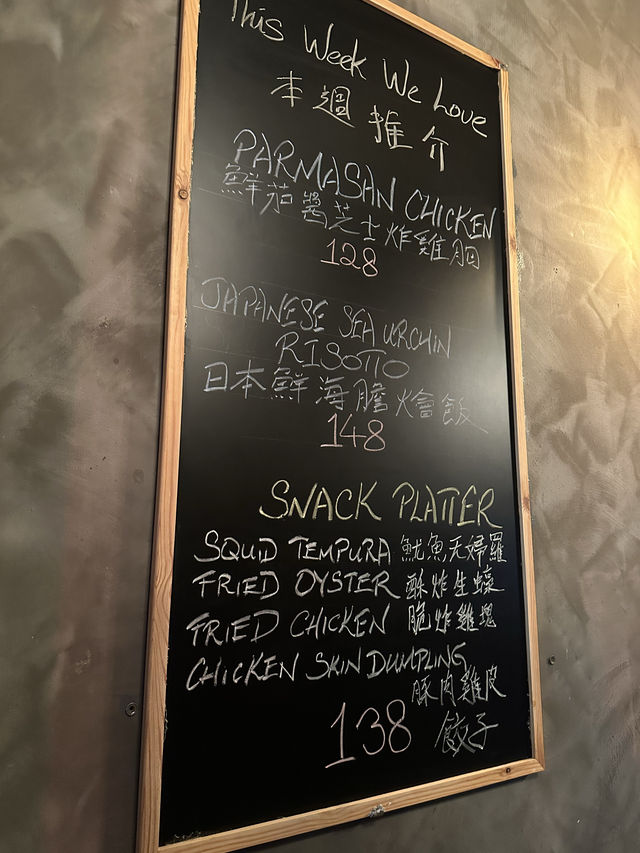 This Week We Love
本週推介
PARMASAN CHICKEN
鮮茄醬芝士炸雞胸
128
JAPANESE SEA URCHIN
RISOTTO
日本鮮海膽燴飯
148
SNACK PLATTER
SQUID TEMPURA 魷魚天婦羅
FRIED OYSTER 酥炸生蠔
FRIED CHICKEN 脆炸雞塊
CHICKEN SKIN DUMPLING
豚肉雞皮
138 餃子